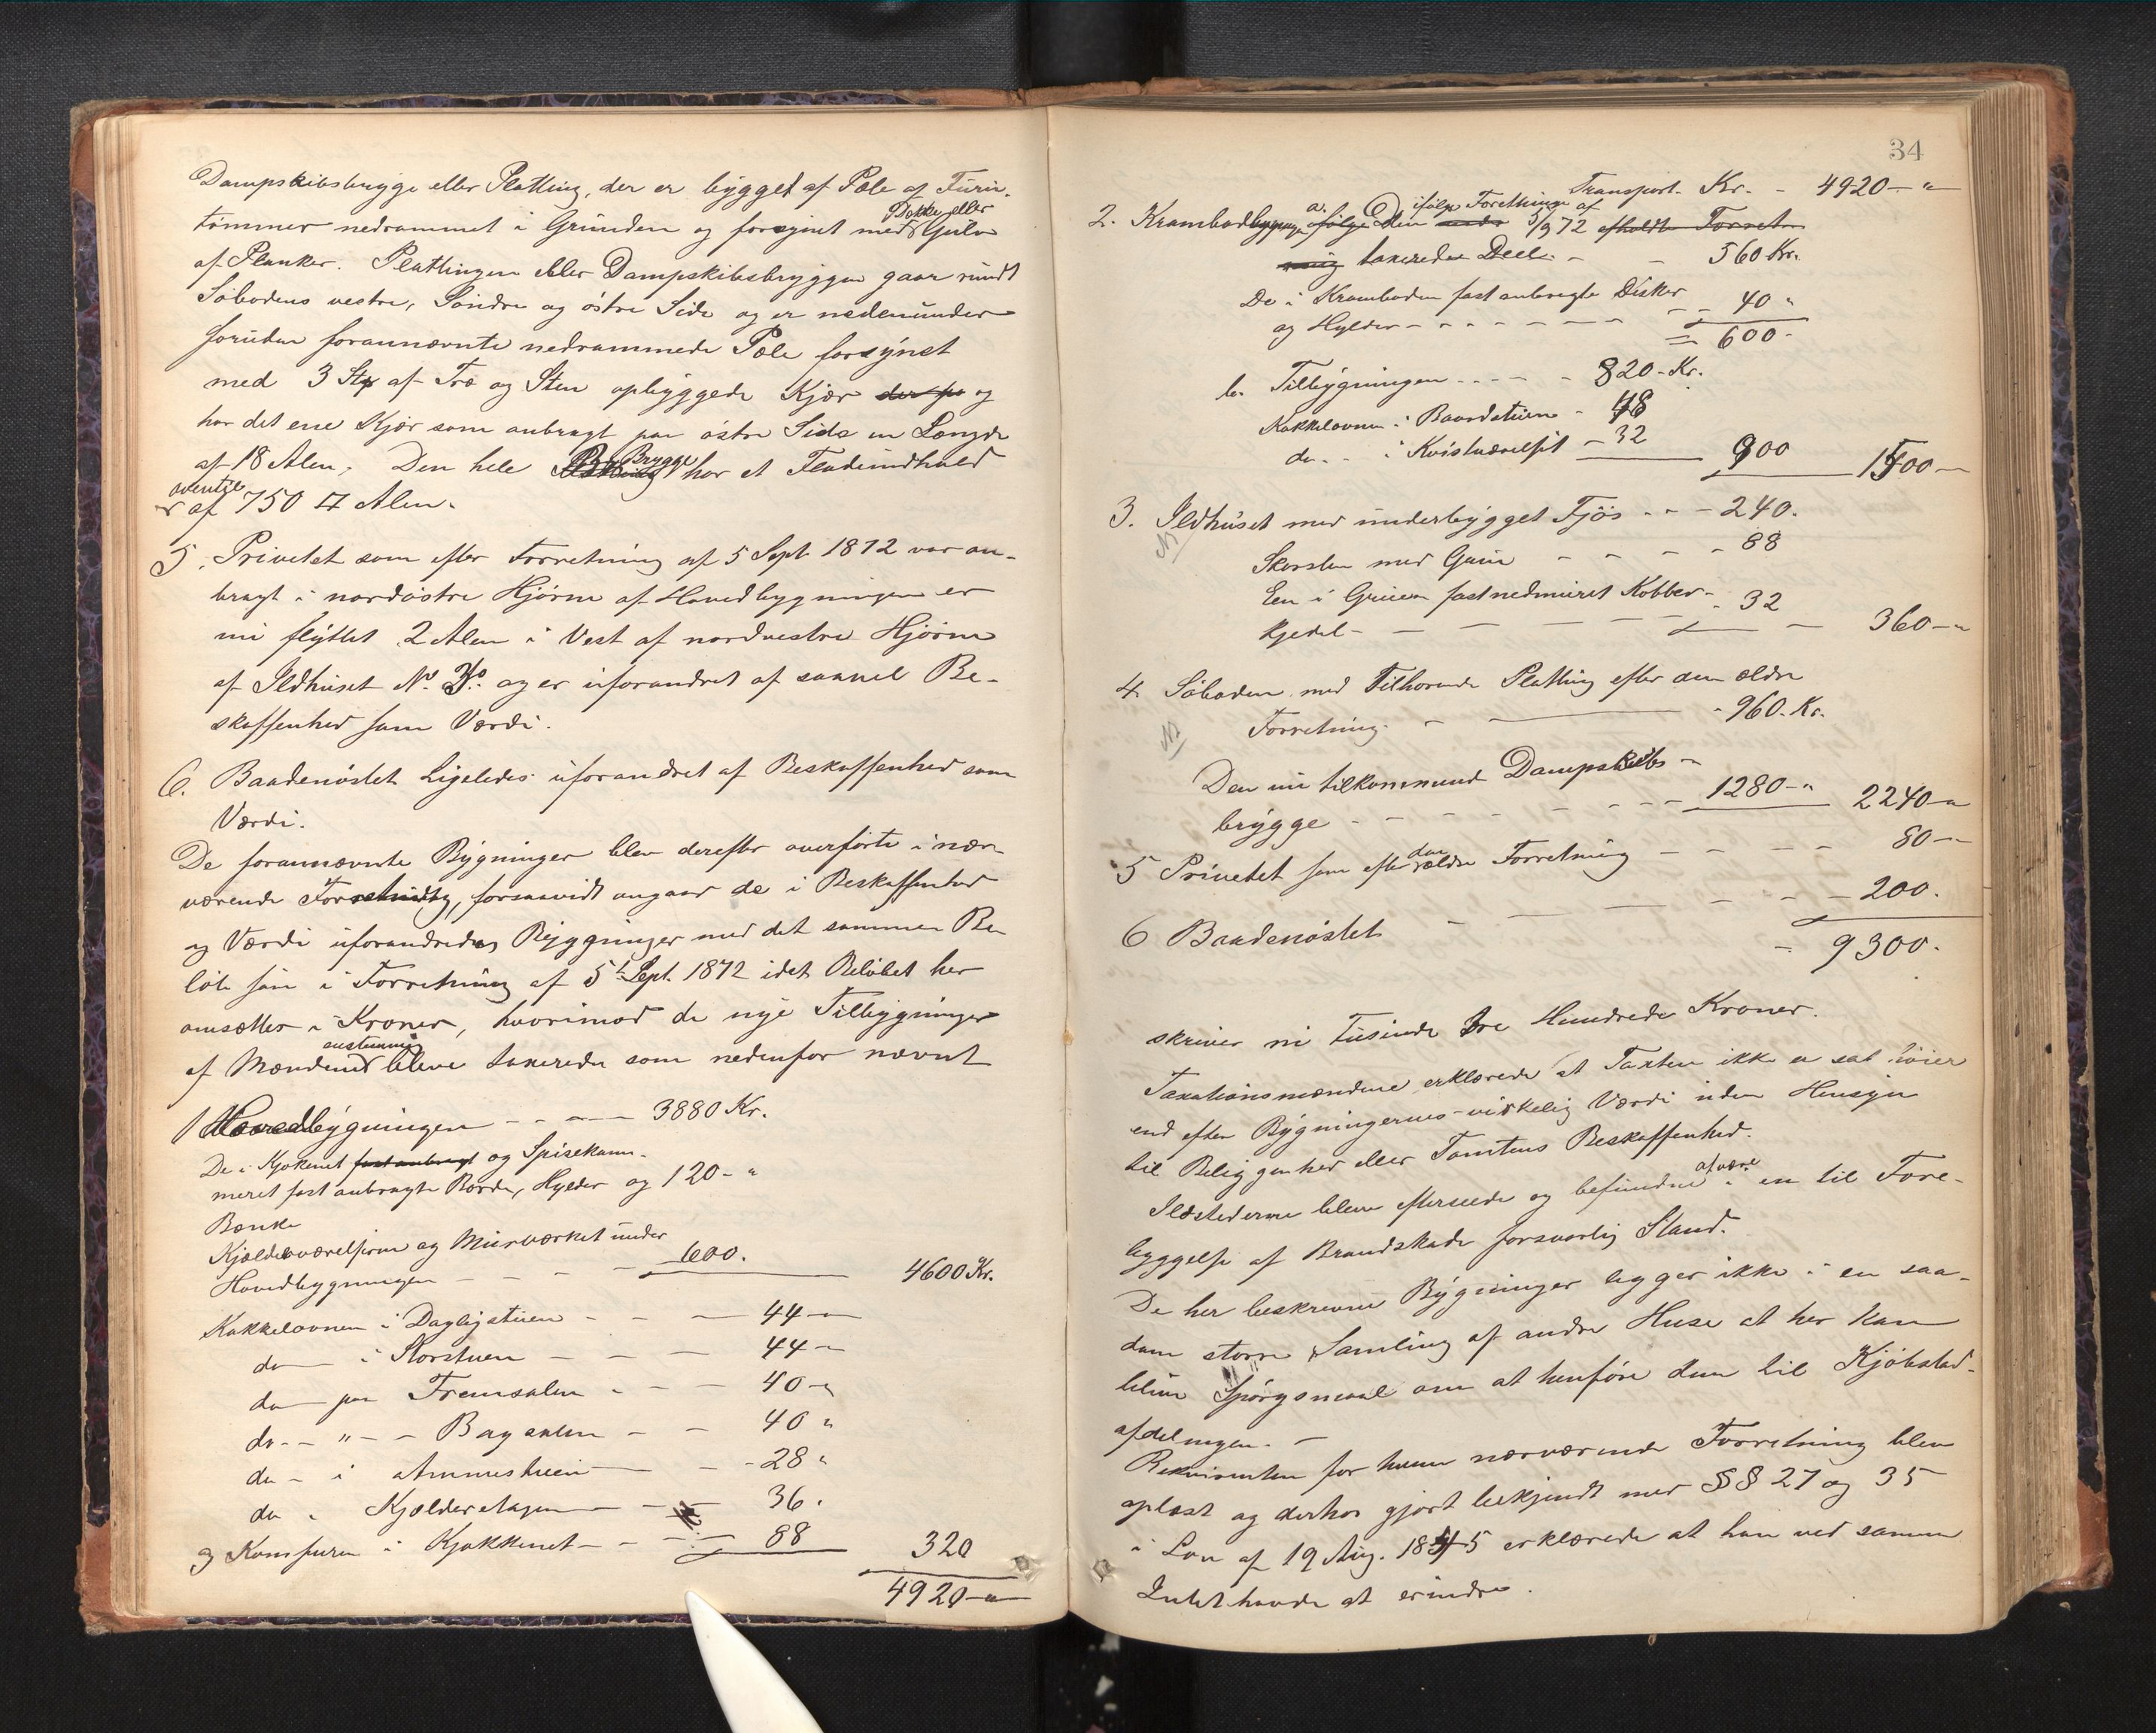 Dampskibsbrygge eller Platting, der er bygget af Pæle af Furu-
tømmer nedrammet i Grunden og forsynet med Dække eller Gulv
af Planker. Plattingen eller Dampskibsbryggen gaar rundt
Søbodens vestre, Søndre og østre Side og er nedenunder
foruden forannævnte nedrammede Pæle forsynet
med 3 Stk af Træ og Sten opbyggede Kjær der paa og
har det ene Kjær som anbragt paa østre Side en Længde
af 18 Alen, Den hele Brygge har et Fladeindhold
oventil
af 750 □ Alen.
5. Privetet som efter Forretning af 5 Sept. 1872 var an-
bragt i nordøstre Hjørne af Hovedbygningen er
nu flyttet 2 Alen i Vest af nordvestre Hjørne
af Ildhuset No. 3. og er uforandret af saavel Be-
skaffenhed som Værdi.
6. Baadenøstet Ligeledes uforandret af Beskaffenhed som
Værdi.
De forannævnte Bygninger blev derefter overførte i nær-
værende Forretning, forsaavidt angaar de i Beskaffenhed
og Værdi uforandrede Bygninger med det samme Be-
løb som i Forretning af 5te Sept. 1872 idet Beløbet her
omsættes i Kroner, hvorimod de nye Tilbygninger
af Mændene enstemmig bleve taxerede som nedenfor nævnt
1 Hovedbygningen - - - 3880 Kr.
De i Kjøkenet fast anbragt og Spisekam-
meret fast anbragte Borde, Hylder og 120 - "
Bænke
Kjælderværelserne og Murværket under
Hovedbygningen - - - - 600. 4600 Kr.
Kakkelovnen i Dagligstuen - - - 44 -
do - i Storstuen - - - 44 -
do - paa Fremsalen - - - 40 -
do - - " - - Bagsalen - - 40 "
do - i Ammestuen - - 28 "
do " Kjælderetagen - - 36 .
og Komfuren i Kjøkkenet - - 88 320
4920 - "
34
Transport. Kr. - 4920 - "
2. Krambodbygningen a. ifølge Den ifølge Forretning af 5/9 72 afholdte Forret-
ning taxerede Deel - - 560 Kr.
De i Kramboden fast anbragte Disker
og Hylder - - - - - - 40 "
= 600 -
b. Tilbygningen - - - - 820 - Kr.
Kakkelovnen i Baardstuen - 48
do - - i Kvistværelset - 32 900 1500 -
3. Ildhuset med underbygget Fjøs - - - 240.
Skorsten med Grue - - - - 88
Een i Gruen fastnedmuret Kobber-
kjedel - - - - - 32 - 360 - "
4. Søboden med Tilhørende Platting efter den ældre
Forretning - - 960. Kr.
Den nu tilkommend Dampskibs-
brygge - - - - - - 1280 - " 2240 - "
5 Privetet som efter den ældre Forretning - - - - 80 -
6 Baadenøstet - - - - - - 200.
- 9300.
skriver ni tusinde tre Hundrede Kroner.
Taxationsmændene erklærede at Taxten ikke er sat høier
end efter Bygningernes virkelig Værdi uden Hensyn
til Beliggenhed eller Tomtens Beskaffenhed.
Ildstederne bleve efterseede og befundne at være i en til Fore-
byggelse af Brandskade forsvarlig Stand.
De her beskrevne Bygninger ligger ikke i en saa-
dan større Samling af andre Huse at her kan
blive Spørgsmaal om at henføre dem til Kjøbstad-
afdelingen. -
Rekvirenten for hvem nærværende Forretning blev
oplæst og derhos gjort bekjendt med §§ 27 og 35
i Lov af 19 Aug. 1845 erklærede at han ved samme
Intet havde at erindre.